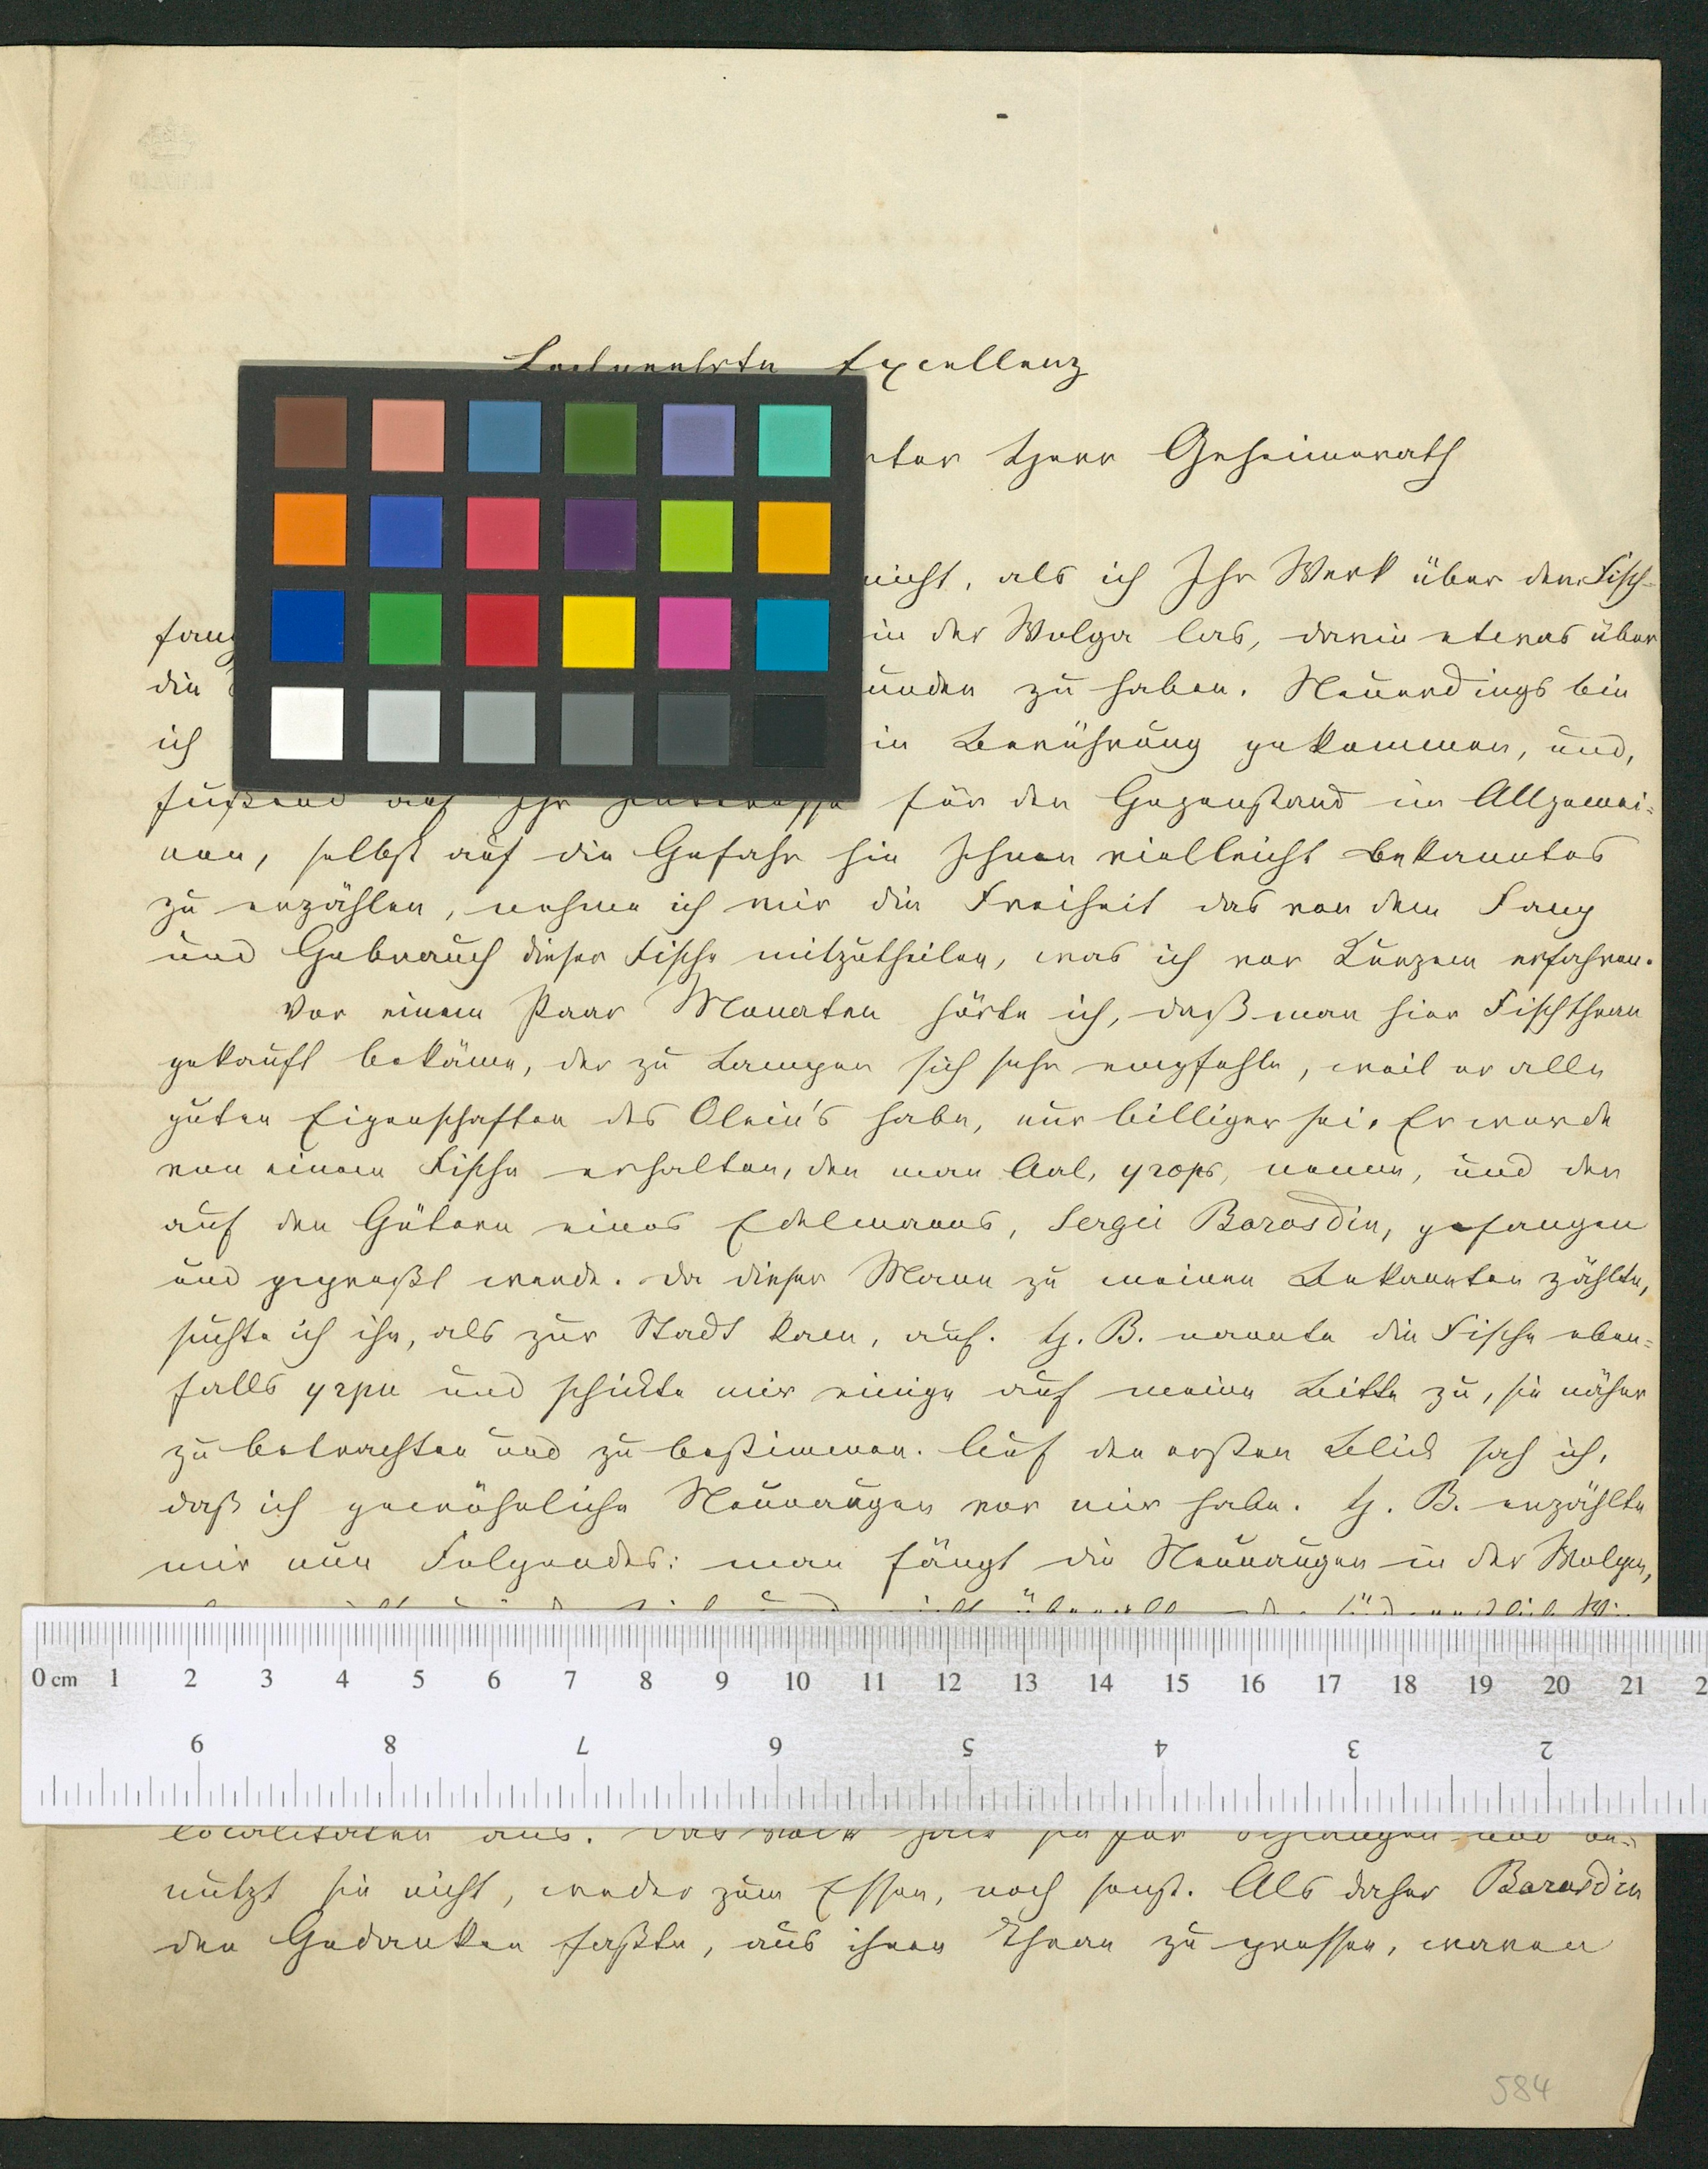 Hochgeehrte Excellenz
Herr Geheimerath
nicht, als ich Ihr Werk über den Fisch-
fang in der Wolga las, darin etwas über
die zu haben. Neuerdings bin
ich in Berührung gekommen, und,
fußend auf Ihr Interesse für den Gegenstand im Allgemei=
nen, selbst auf die Gefahr hin Ihnen vielleicht Bekanntes
zu erzählen, nehme ich mir die Freiheit das von dem Fang
und Gebrauch dieser Fische mitzutheilen, was ich vor Kurzem erfahren.
Vor einem Paar Monaten hörte ich, daß man hier Fischthran
gekauft bekäme, der zu Lampen sich sehr empfehle, weil er alle
guten Eigenschaften des Olein's habe, nur billiger sei. Er werde
von einem Fische erhalten, den man Aal, угорь, nenne, und der
auf den Gütern eines Edelmanns, Sergei Barosdin, gefangen
und gepreßt werde. Da dieser Mann zu meinen Bekannten zählte,
suchte ich ihn, als zur Stadt kam, auf. H. B. nannte die Fische eben=
falls угри und schickte mir einige auf meine Bitte zu, sie näher
zu betrachten und zu bestimmen. Auf den ersten Blick sah ich,
daß ich gewöhnliche Neunaugen vor mir habe. H. B. erzählte
mir nun Folgendes: man fängt die Neunaugen in der Wolga,
localitäten aus. Das Volk hält sie für Schlangen und be=
nutzt sie nicht, weder zum Essen, noch sonst. Als daher Barosdin
den Gedanken faßte, aus ihnen Thran zu pressen, waren
584
0 cm 1 2 3 4 5 6 7 8 9 10 11 12 13 14 15 16 17 18 19 20 21 2
9 8 7 6 5 4 3 2